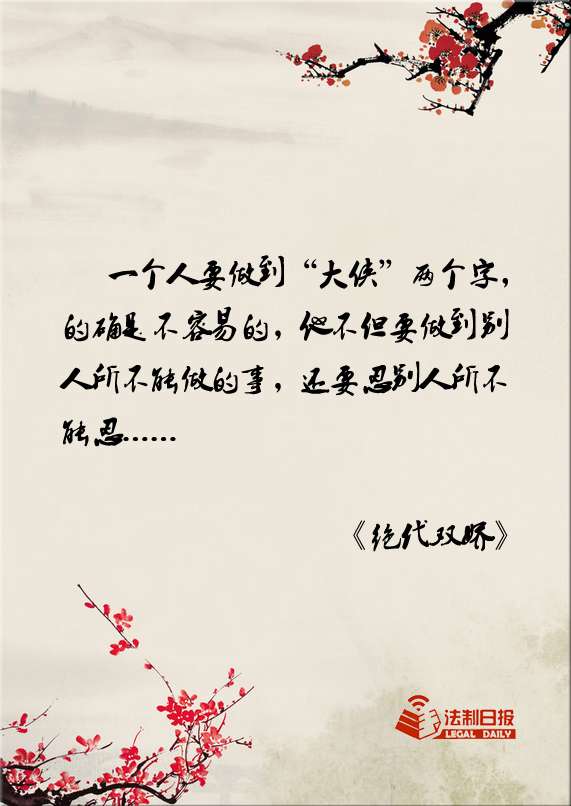 一个人要做到“大侠”两个字，
的确是不容易的，他不但要做到别
人所不能做的事，还要忍别人所不
能忍……
《绝代双娇》
法制日报
LEGAL DAILY